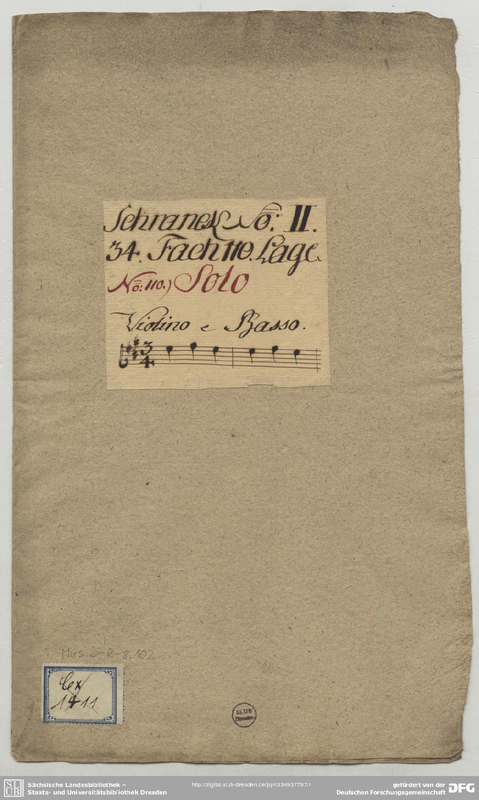 Schranck No: II.
34. Fach 110. Lage
No: 110.) Solo
Violino e Basso.
3
4
Mus. 2-R-8,102
Cx
1911
SLUB
Dresden
Sächsische Landesbibliothek –
Staats- und Universitätsbibliothek Dresden
gefördert von der
Deutschen Forschungsgemeinschaft
DFG